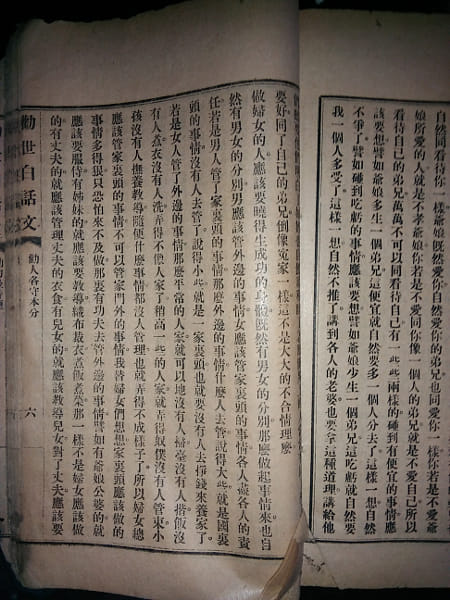 自然同看待你一樣爺娘既然愛你自然愛你的弟兄也同愛你一樣你若是不愛爺
娘所愛的人就是不孝爺娘你若是不愛同你像一個人的弟兄就是不愛自己所以
看待自己的弟兄萬萬不可以同看待自己有一些些兩樣的碰到有便宜的事情應
該要想譬如爺娘多生一個弟兄這便宜就自然要多一個人分去了這樣一想自然
不爭了譬如碰到吃虧的事情應該要想譬如爺娘少生一個弟兄這吃虧就自然要
我一個人多受了這樣一想自然不推了講到各人的老婆也要拿這種道理講給他
要好同了自己的弟兄倒像寃家一樣這不是大大的不合情理麼
做婦女的人應該要曉得生成功的身體既然有男女的分別那麼做起事情來也自
然有男女的分別男應該管外邊的事情女應該管家裏頭的事情各人盡各人的責
任若是男人管了家裏頭的事情那麼外邊的事情什麼人去管說得大些就是國裏
頭的事情沒有人去管了說得小些就是一家裏頭也就要沒有人去掙錢來養家了
若是女人管了外邊的事情那麼平常的人家就可以地沒有人掃臺沒有人揩飯沒
有人煮衣沒有人洗弄得不像人家了稍高一些的人家就弄得奴僕沒有人管束小
孩沒有人撫養教導隨便什麼事情都沒有人管理也就弄得不成樣子了所以婦女總
應該管家裏頭的事情不可以管家門外的事情我替婦女們想想家裏頭應該做的
事情多得狠只恐怕來不及做那裏有功夫去管外邊的事情譬如有爺娘公婆的就
應該要服侍有姊妹的就應該要教導織布裁衣煮飯煮菜那一樣不是婦女應該做
的有丈夫的就應該管理丈夫的衣食有兒女的就應該教導兒女對了丈夫應該要
勸世白話文 勸人各守本分 六